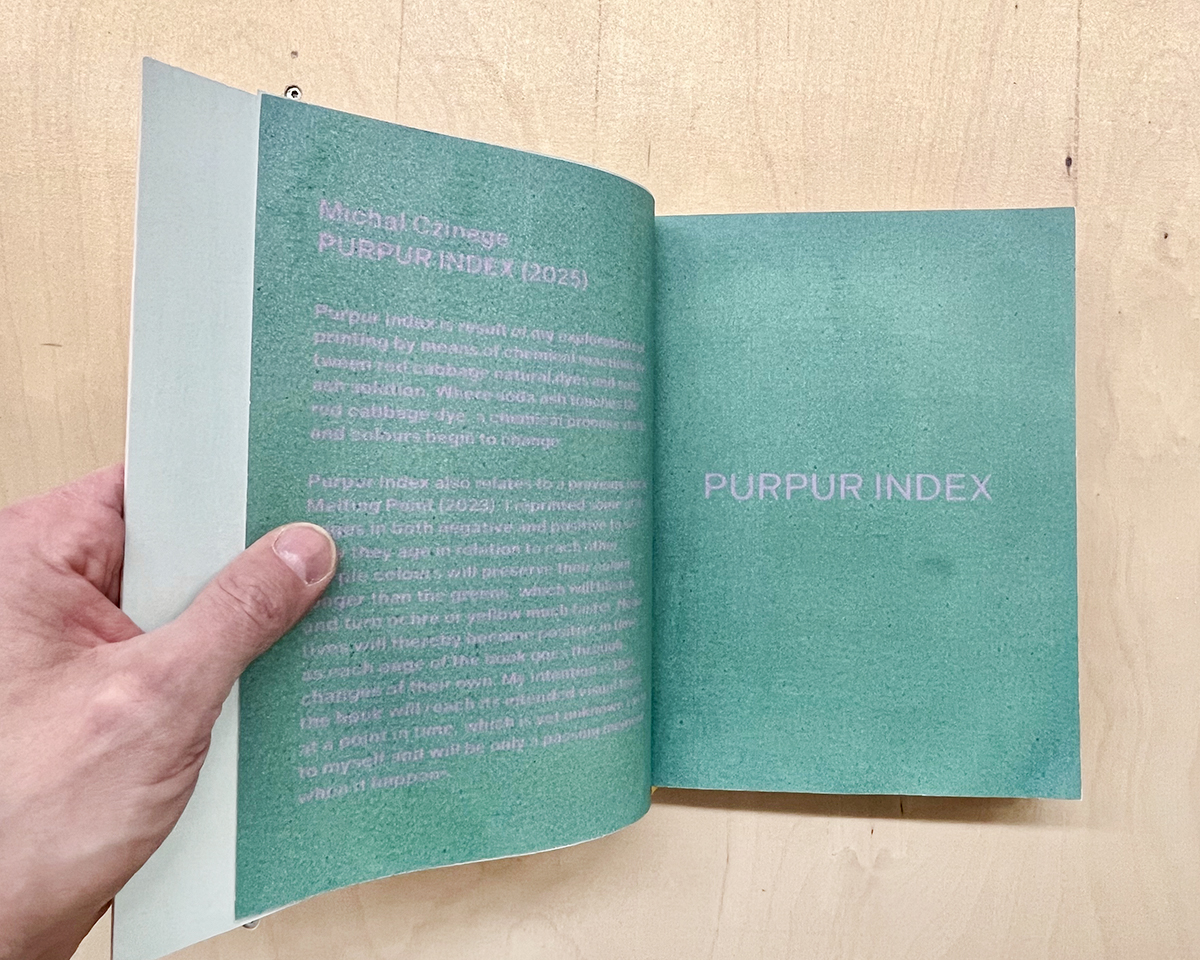 Michal Czinege
PURPUR INDEX (2025)
Purpur Index is result of my exploration of
printing by means of chemical reactions
tween red cabbage natural dyes and soda
ash solution. Where soda ash touches the
red cabbage dye a chemical process
and colours begin to change.
Purpur Index also relates to a previous
Melting Point (2023). I reprinted some
in both negative and positive to
they age in relation to each other.
colours will preserve their
than the greens, which will
and turn ochre or yellow much faster.
tives will thereby become positive in time
as each page of the book goes through
changes of their own. My intention is that
the book will reach its intended visual
at a point in time, which is yet unknown
to myself and will be only a passing moment
when it happens.
PURPUR INDEX